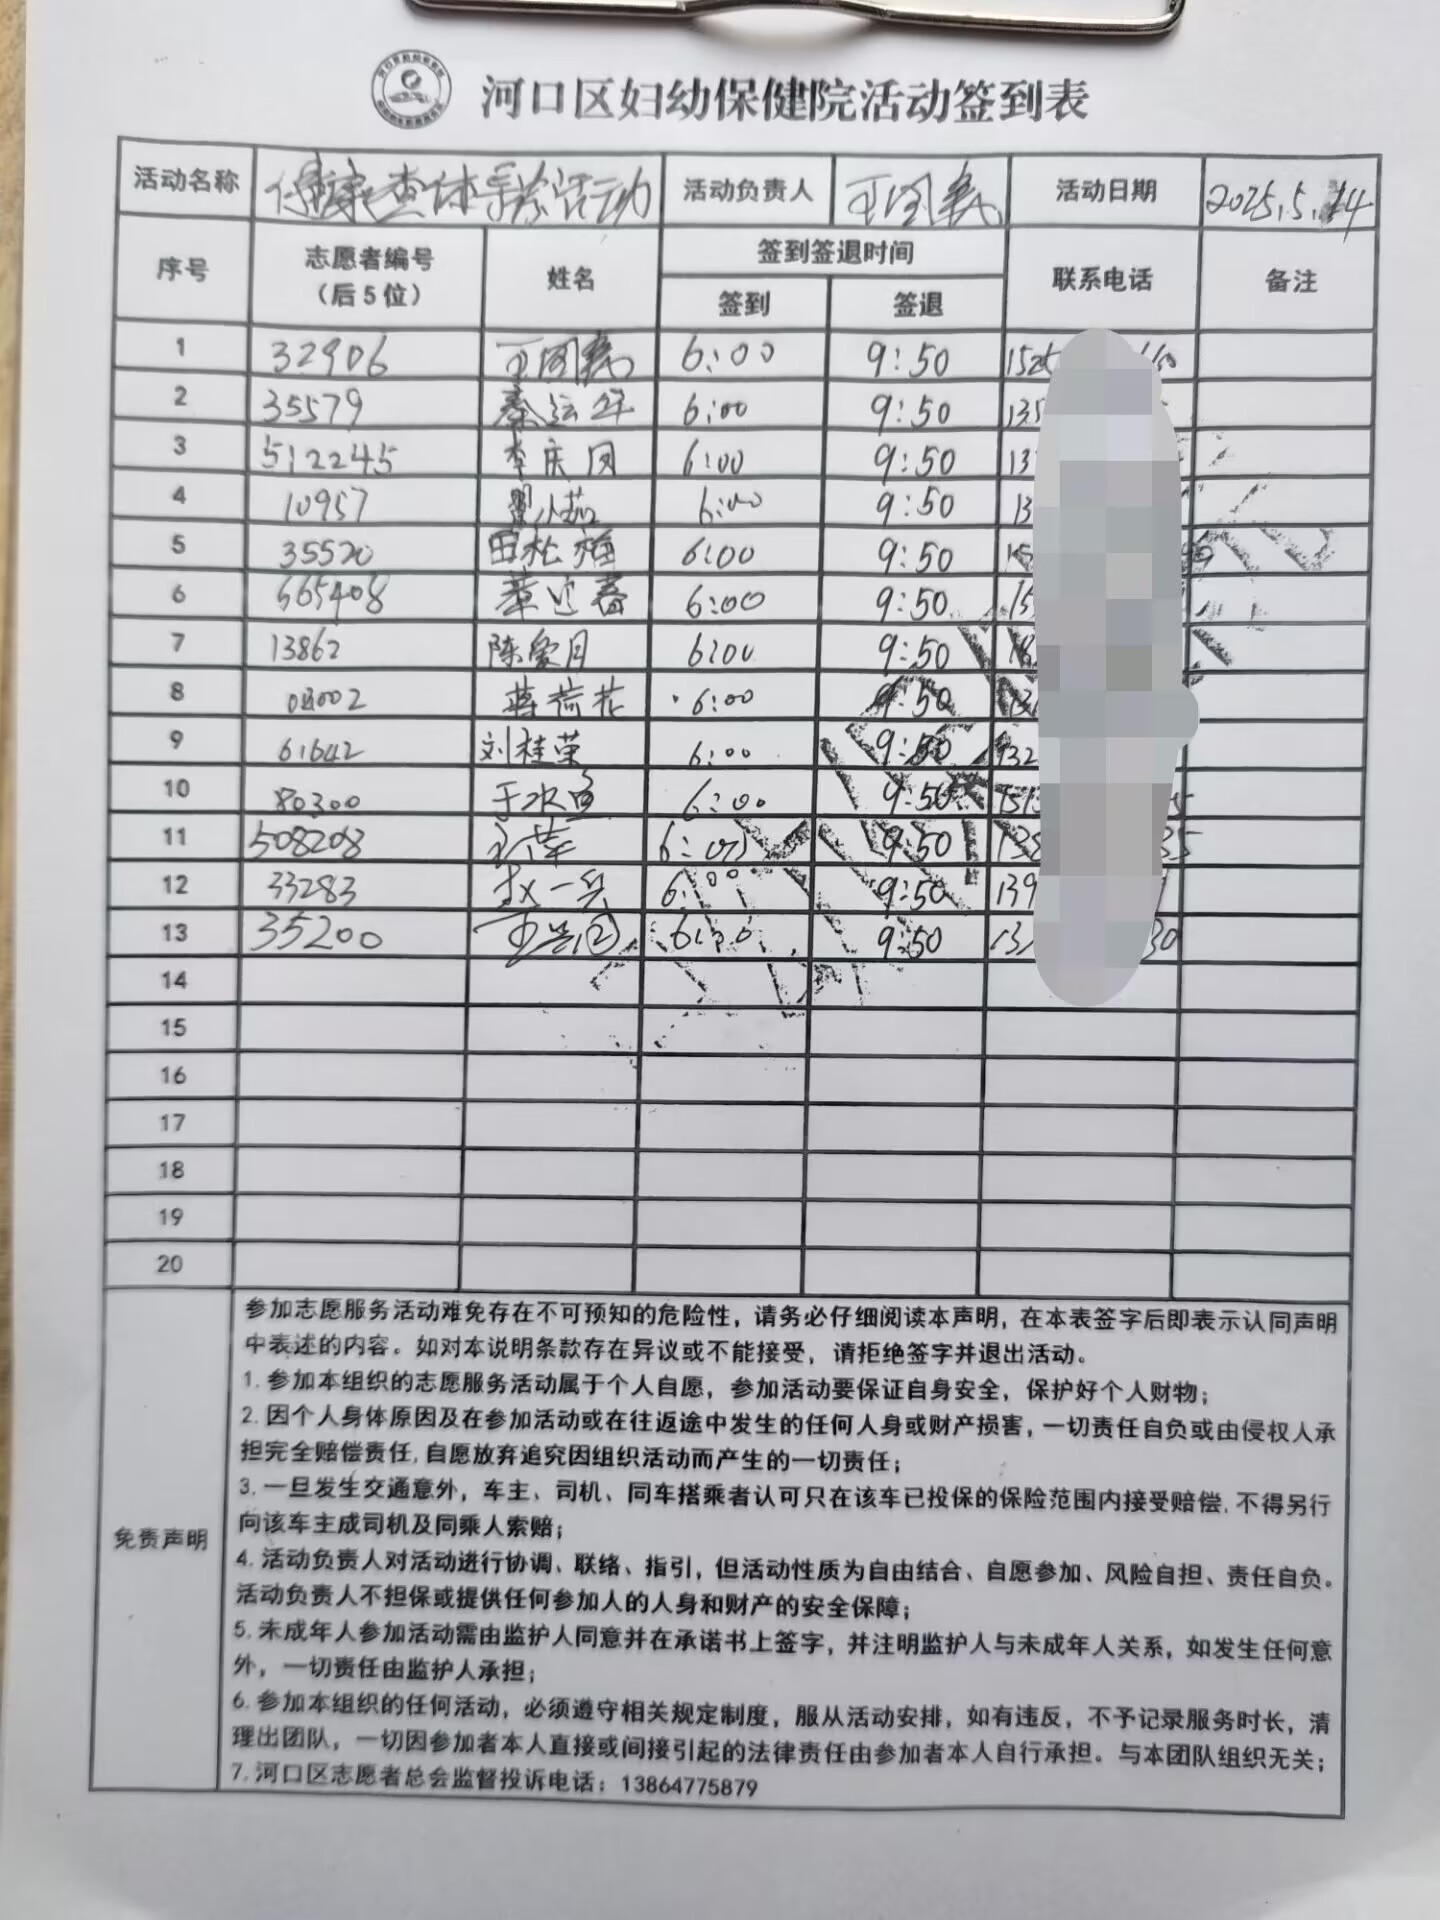 河口区妇幼保健院活动签到表
活动名称 健康查体 活动 活动负责人 王国义 活动日期 2025.5.14
序号 志愿者编号（后5位） 姓名 签到签退时间 联系电话 备注
签到 签退
1 32906 王国义 6:00 9:50 152
2 35579 秦运华 6:00 9:50 135
3 512245 李庆凤 6:00 9:50 13
4 10957 翟小茹 6:00 9:50 13
5 35520 田松梅 6:00 9:50 15
6 665408 春 6:00 9:50 15
7 13862 陈爱月 6:00 9:50 18
8 002 蒋荷花 6:00 9:50 13
9 61642 刘桂荣 6:00 9:50 132
10 80300 于 6:00 9:50 151
11 508208 6:00 9:50 138 35
12 33283 一兵 6:00 9:50 139
13 35200 王 6:00 9:50 137 30
14
15
16
17
18
19
20
免责声明
参加志愿服务活动难免存在不可预知的危险性，请务必仔细阅读本声明，在本表签字后即表示认同声明
中表述的内容。如对本说明条款存在异议或不能接受，请拒绝签字并退出活动。
1. 参加本组织的志愿服务活动属于个人自愿，参加活动要保证自身安全，保护好个人财物；
2. 因个人身体原因及在参加活动或在往返途中发生的任何人身或财产损害，一切责任自负或由侵权人承
担完全赔偿责任，自愿放弃追究因组织活动而产生的一切责任；
3. 一旦发生交通意外，车主、司机、同车搭乘者认可只在该车已投保的保险范围内接受赔偿，不得另行
向该车主成司机及同乘人索赔；
4. 活动负责人对活动进行协调、联络、指引，但活动性质为自由结合、自愿参加、风险自担、责任自负。
活动负责人不担保或提供任何参加人的人身和财产的安全保障；
5. 未成年人参加活动需由监护人同意并在承诺书上签字，并注明监护人与未成年人关系，如发生任何意
外，一切责任由监护人承担；
6. 参加本组织的任何活动，必须遵守相关规定制度，服从活动安排，如有违反，不予记录服务时长，清
理出团队，一切因参加者本人直接或间接引起的法律责任由参加者本人自行承担。与本团队组织无关；
7. 河口区志愿者总会监督投诉电话：13864775879